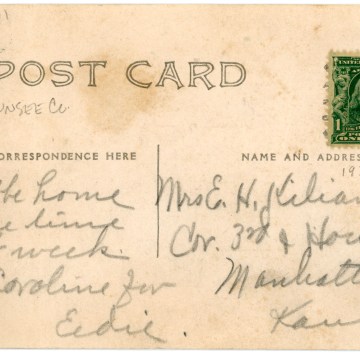 POST CARD
UNSEE Co
CORRESPONDENCE HERE
NAME AND ADDRES
1
home
time
week.
Caroline for
Edie.
Mrs E. H. Kilian
Cor. 3rd & Hou
Manhatt
Kan